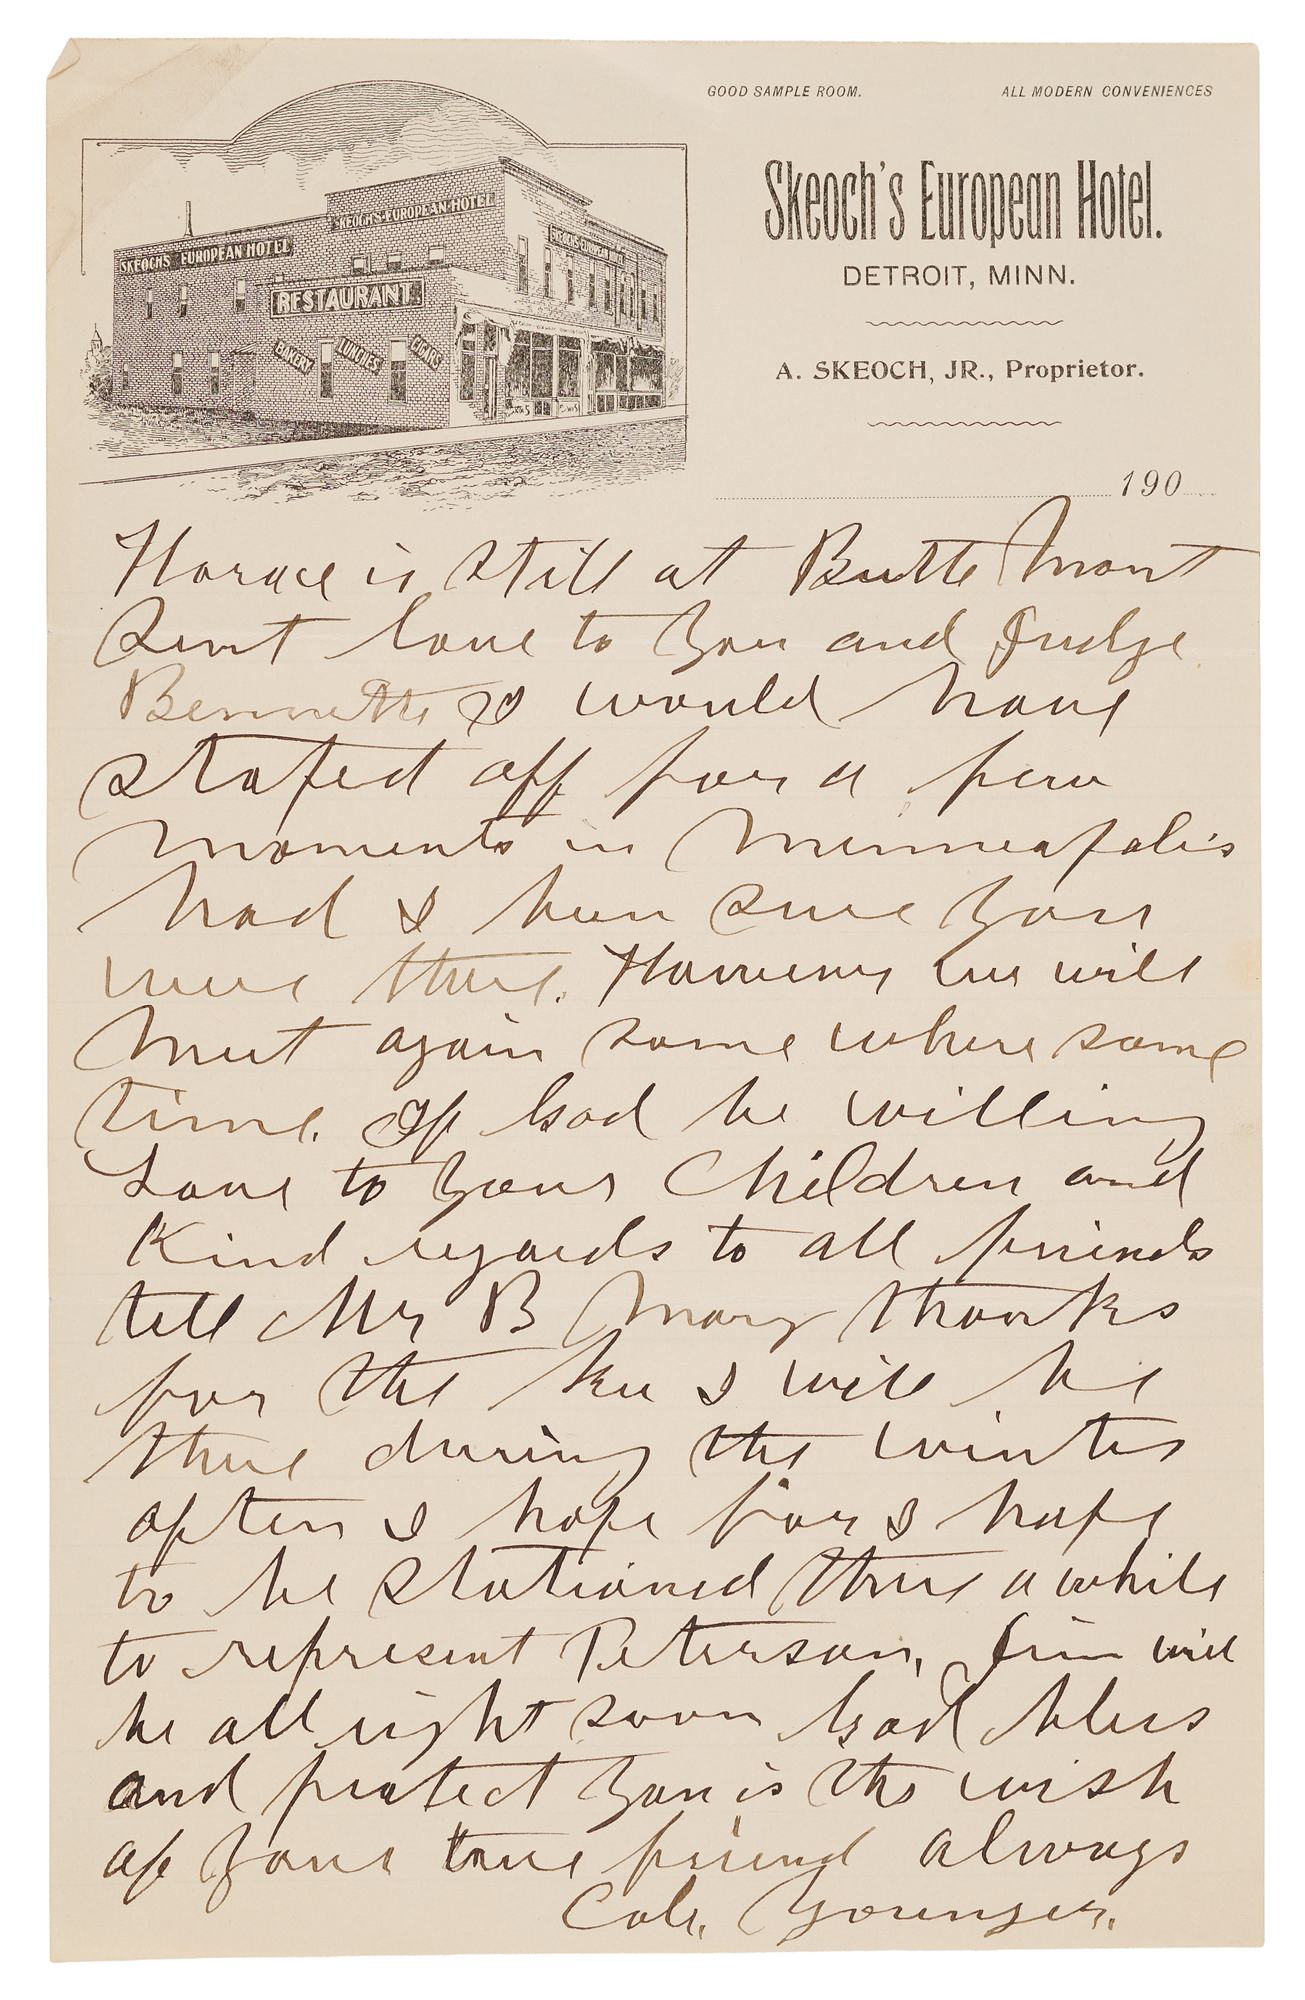 GOOD SAMPLE ROOM. ALL MODERN CONVENIENCES
Skeoch's European Hotel.
DETROIT, MINN.
A. SKEOCH, JR., Proprietor.
190
SKEOCH'S EUROPEAN HOTEL
SKEOCH'S EUROPEAN HOTEL
SKEOCH'S EUROPEAN HOTEL
RESTAURANT
BAKERY LUNCHES CIGARS
Horace is still at Butte Mont
Sent love to you and Judge
Bennette I would have
stoped off for a few
moments in Minneapolis
had I been sure you
were there. However we will
meet again some where some
time. If God be willing
Love to your Children and
Kind regards to all friends
tell Mr B Many thanks
for the I will be
there during the winter
often I hope for I hope
to be stationed there a while
to represent Peterson, Jim will
be all right soon God bless
and protect you is the wish
of your true friend always
Cole. Younger.